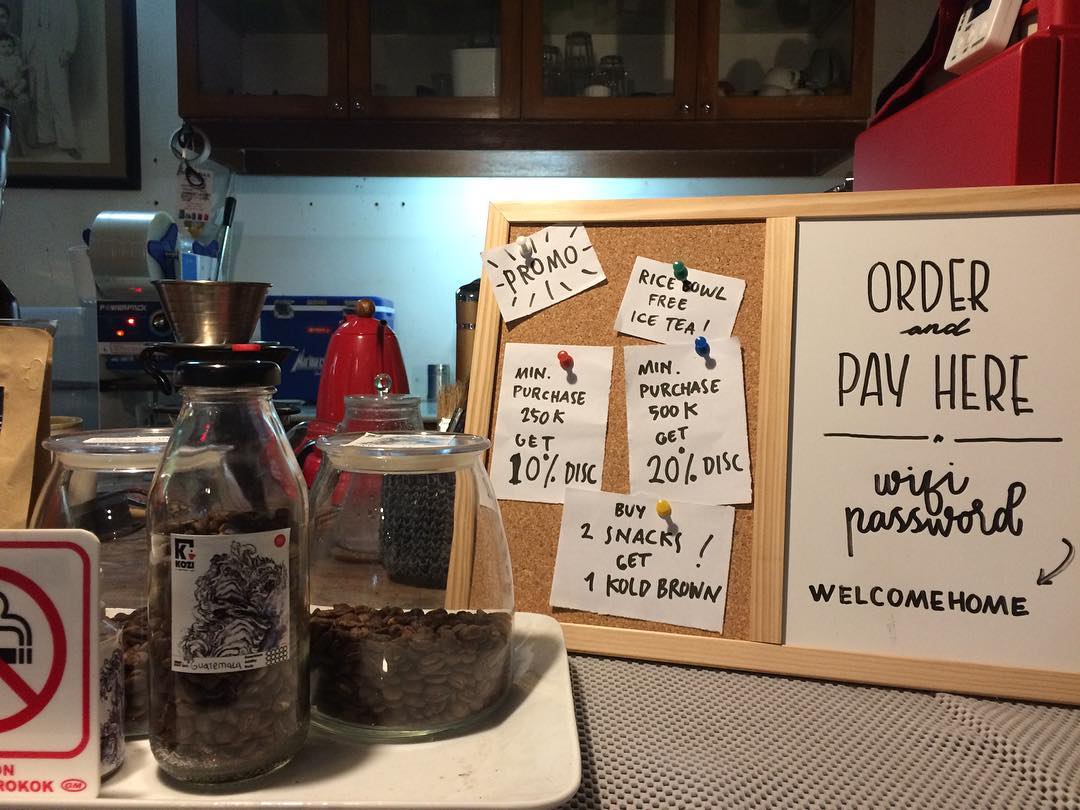 PROMO
RICE BOWL
FREE
ICE TEA!
MIN.
PURCHASE
250K
GET
10% DISC
MIN.
PURCHASE
500K
GET
20% DISC
BUY
2 SNACKS
GET !
1 KOLD BROWN
ORDER
and
PAY HERE
wifi
password
WELCOMEHOME
POWERPACK
K
KOZI
GUATEMALA
ROKOK GM